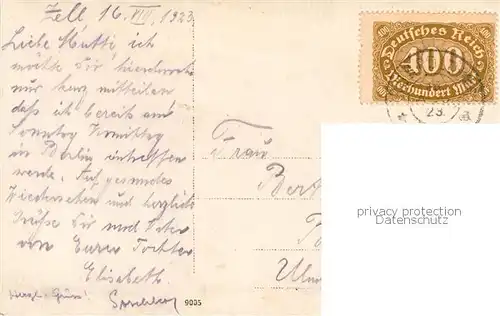 Zell, 16. VIII. 1923.
Liebe Mutti, ich
möchte Dir hierdurch
nur kurz mitteilen
daß ich bereits am
Sonntag Vormittag
in Berlin eintreffen
werde. Auf gesundes
Wiedersehen und herzliche
Grüße Dir und Vater
von Eurer Tochter
Elisabeth.
Herzl. Grüße!
9035
Frau
Deutsches Reich
400
400
400
Vierhundert Mark
23.
a
privacy protection
DATENSCHUTZ